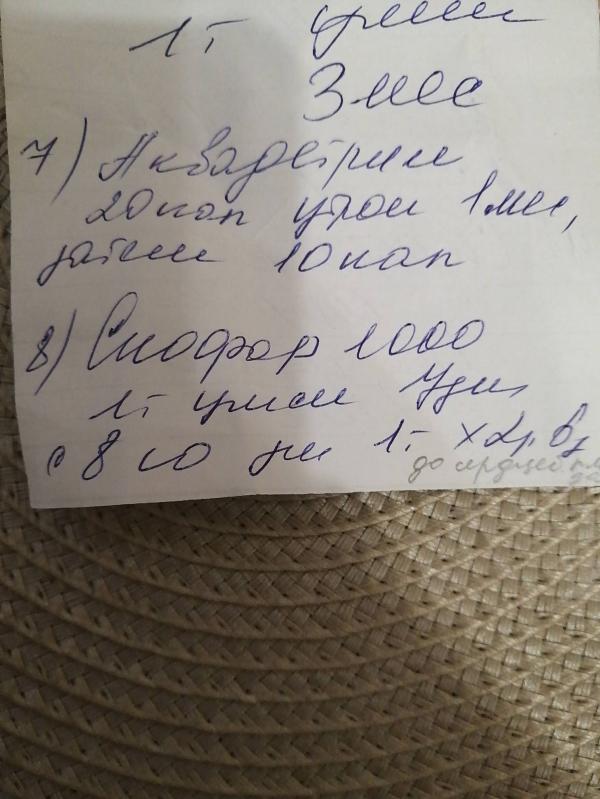 1т утром
3 мес
7) Аквадетрим
20 кап утром 1 мес,
затем 10 кап
8) Сиофор 1000
1т утром 7 дн,
с 8 го дн 1т х 2р. в д
до